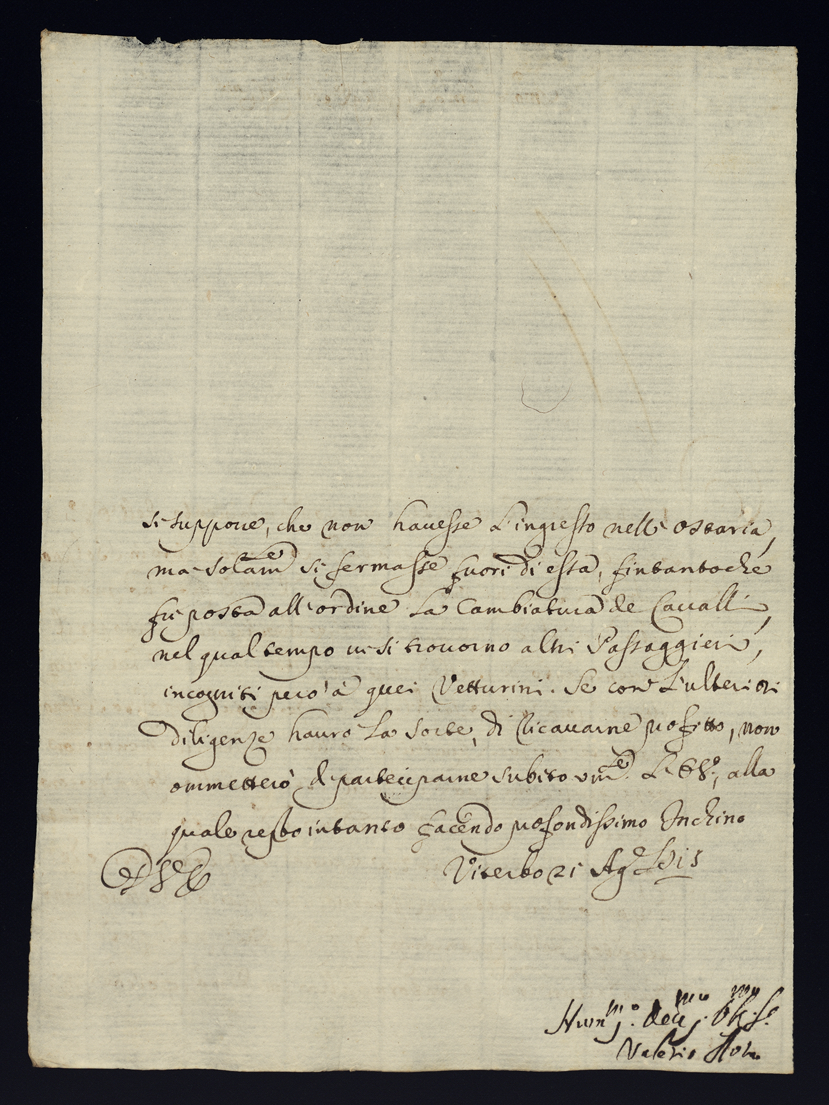 si suppone, che non havesse l'ingresso nell'Ostaria,
ma solam.e si fermasse fuori di essa, fintantoche
fù posta all'ordine la Cambiatura de Cavalli,
nel qual tempo vi si trovorno altri Passaggieri,
incogniti però à quei Vetturini. Se con l'ulteriori
diligenze havrò la sorte, di ricavarne profitto, non
ommetterò di participarne subito um.e l'E.V., alla
quale resto intanto facendo profondissimo Inchino
Viterbo 21 Ag.o
Hum.mo Dev.mo Obl. S.
Valerio